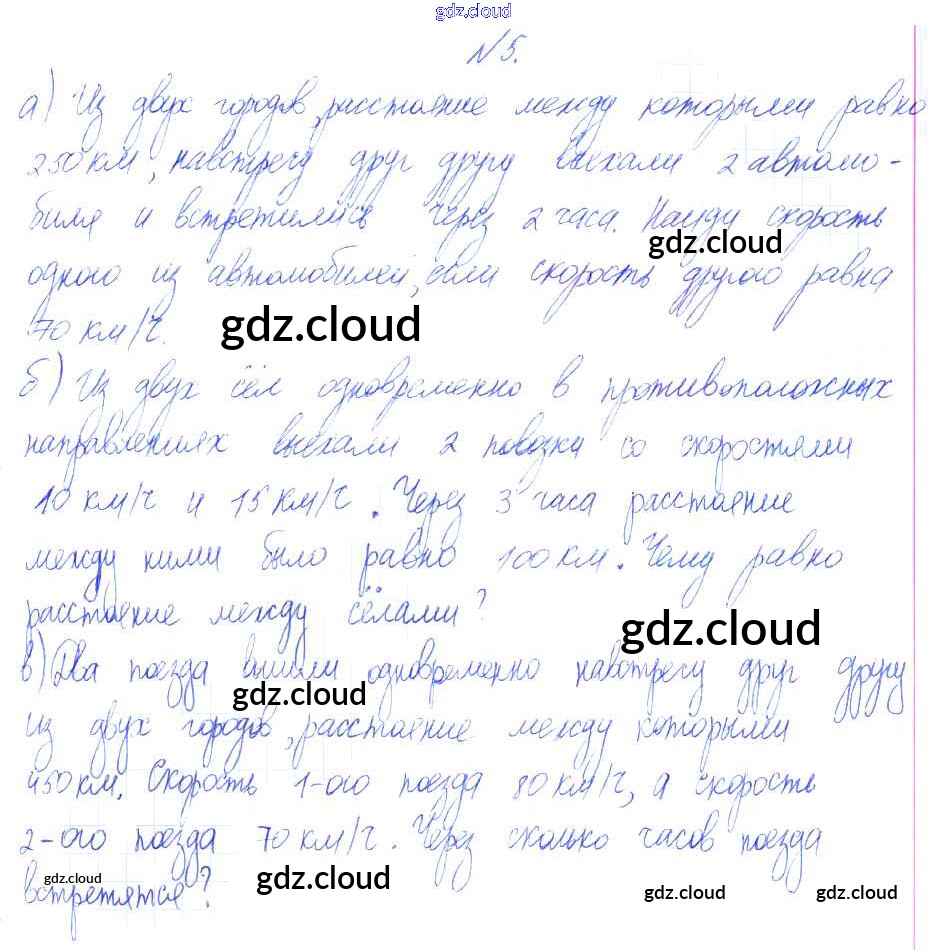 gdz.cloud
№5.
а) Из двух городов, расстояние между которыми равно
250 км, навстречу друг другу выехали 2 автомо-
биля и встретились через 2 часа. Найди скорость
gdz.cloud
одного из автомобилей, если скорость другого равна
70 км/ч.
gdz.cloud
б) Из двух сёл одновременно в противоположных
направлениях выехали 2 повозки со скоростями
10 км/ч и 15 км/ч. Через 3 часа расстояние
между ними было равно 100 км. Чему равно
расстояние между сёлами?
gdz.cloud
в) Два поезда вышли одновременно навстречу друг другу
gdz.cloud
из двух городов, расстояние между которыми
450 км. Скорость 1-ого поезда 80 км/ч, а скорость
2-ого поезда 70 км/ч. Через сколько часов поезда
встретятся?
gdz.cloud
gdz.cloud
gdz.cloud
gdz.cloud